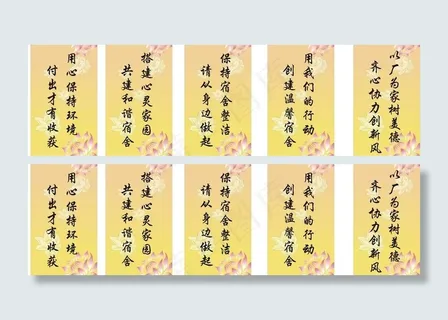 用心保持环境
付出才有收获
搭建心灵家园
共建和谐宿舍
保持宿舍整洁
请从身边做起
用我们的行动
创建温馨宿舍
以厂为家树美德
齐心协力创新风
用心保持环境
付出才有收获
搭建心灵家园
共建和谐宿舍
保持宿舍整洁
请从身边做起
用我们的行动
创建温馨宿舍
以厂为家树美德
齐心协力创新风